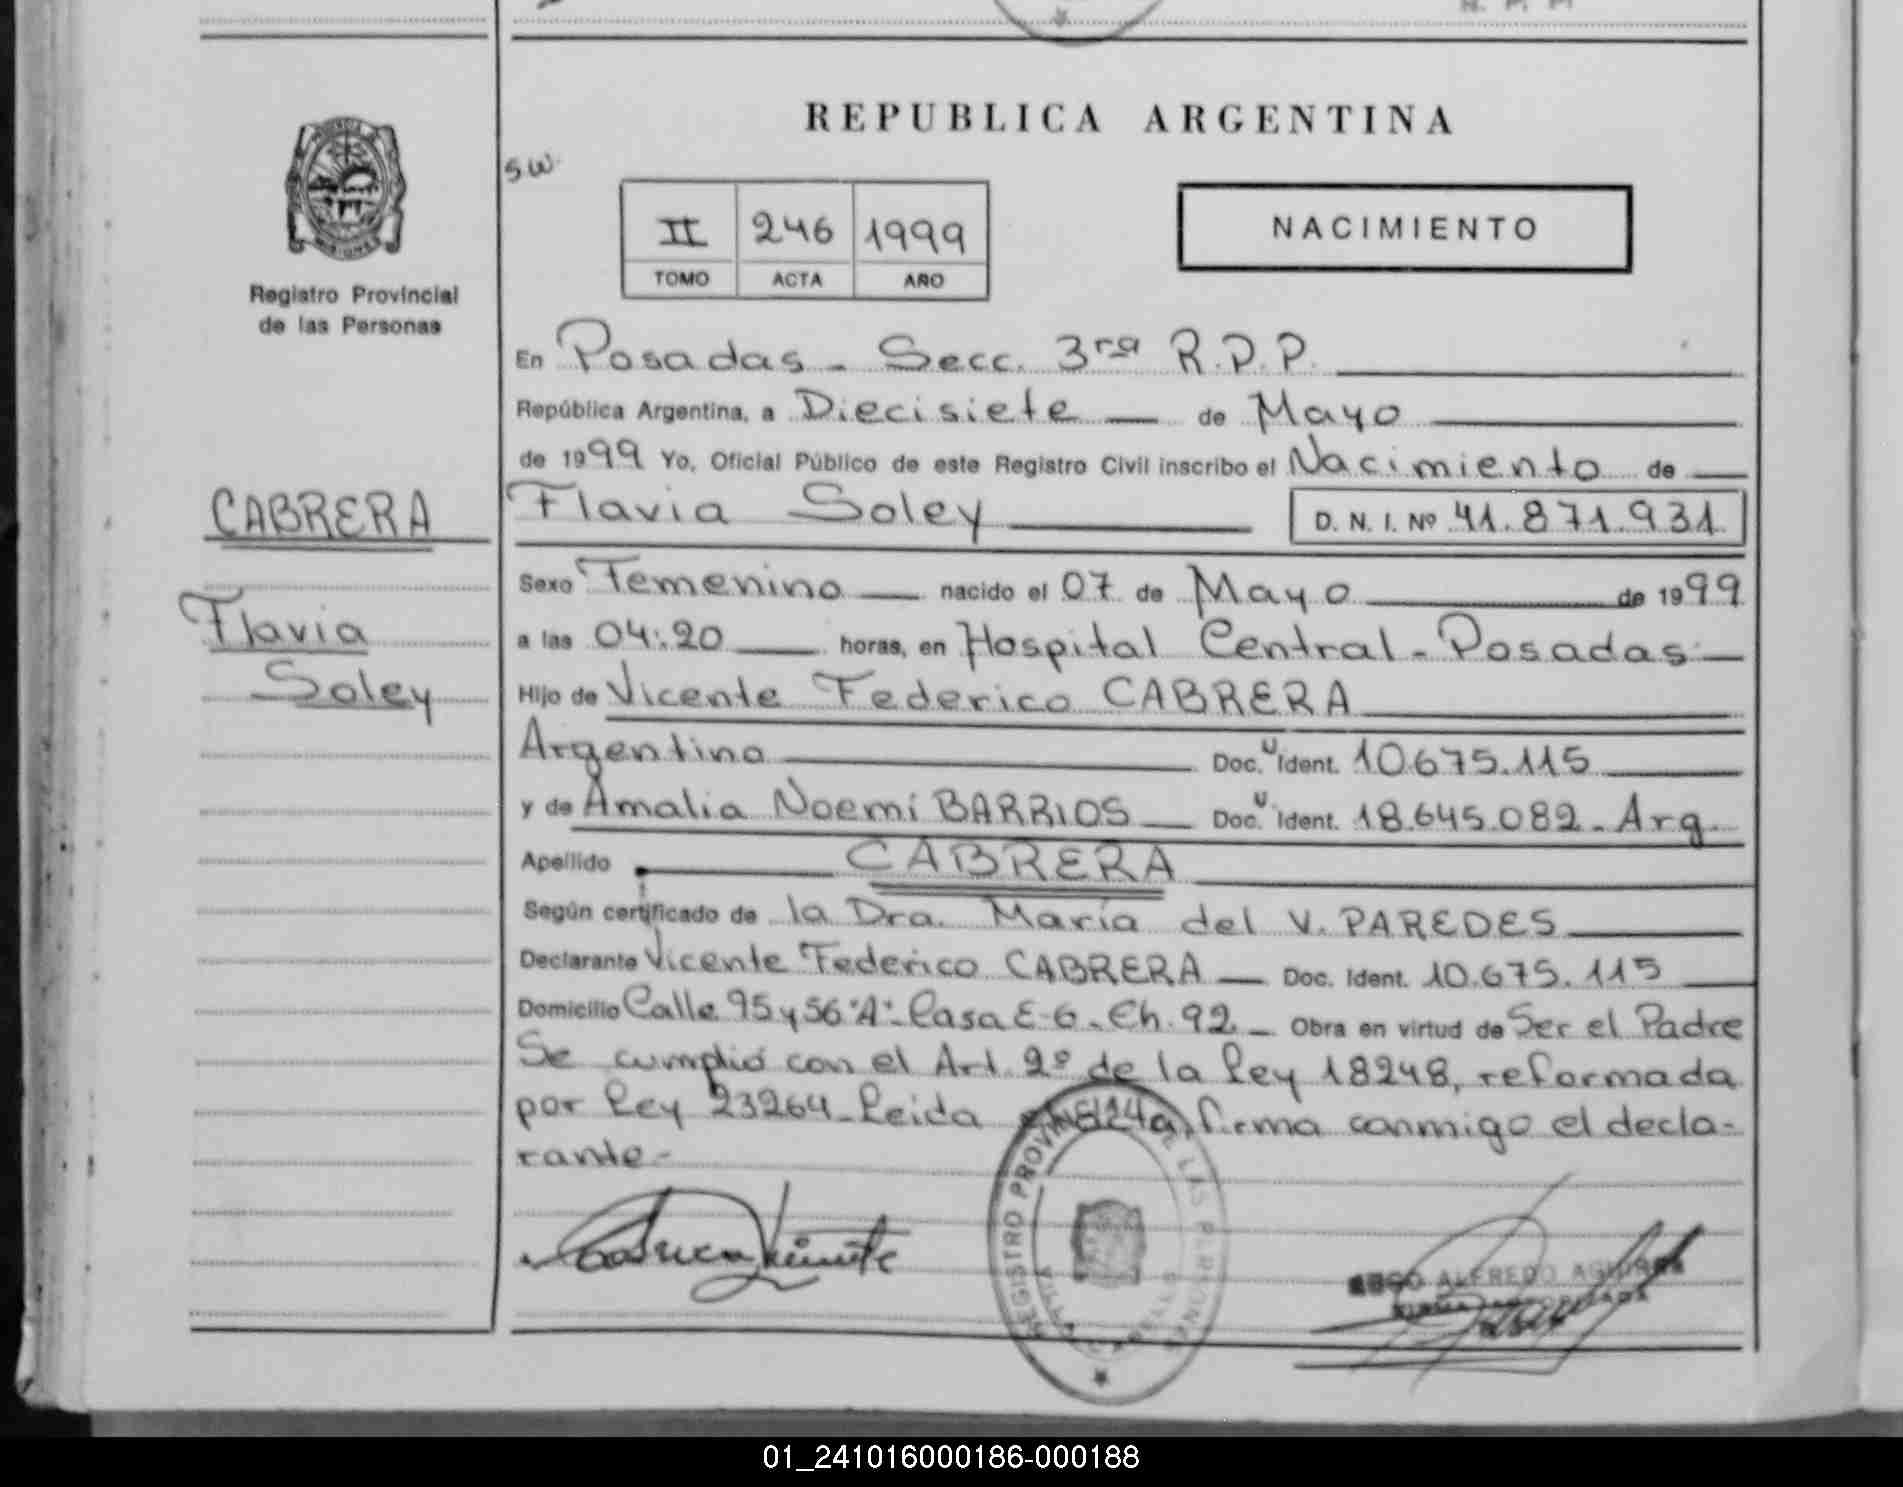 REPUBLICA ARGENTINA
SW
II 246 1999
TOMO ACTA AÑO
NACIMIENTO
Registro Provincial
de las Personas
CABRERA
Flavia
Soley
En Posadas - Secc. 3ra R.P.P.
República Argentina, a Diecisiete de Mayo
de 1999 Yo, Oficial Público de este Registro Civil inscribo el Nacimiento de
Flavia Soley D. N. I. Nº 41.871.931
Sexo Femenino nacido el 07 de Mayo de 1999
a las 04:20 horas, en Hospital Central - Posadas
Hijo de Vicente Federico CABRERA
Argentino Doc. U Ident. 10.675.115
y de Amalia Noemí BARRIOS Doc. U Ident. 18.645.082 - Arg.
Apellido CABRERA
Según certificado de la Dra. María del V. PAREDES
Declarante Vicente Federico CABRERA Doc. Ident. 10.675.115
Domicilio Calle 95 y 56 "A" - Casa E-6 - Ch. 92 - Obra en virtud de Ser el Padre
Se cumplió con el Art. 2º de la Ley 18248, reformada
por Ley 23264 - Leida el acta, firma conmigo el decla-
rante -
REGISTRO PROVINCIAL DE LAS PERSONAS
ALFREDO
01_241016000186-000188